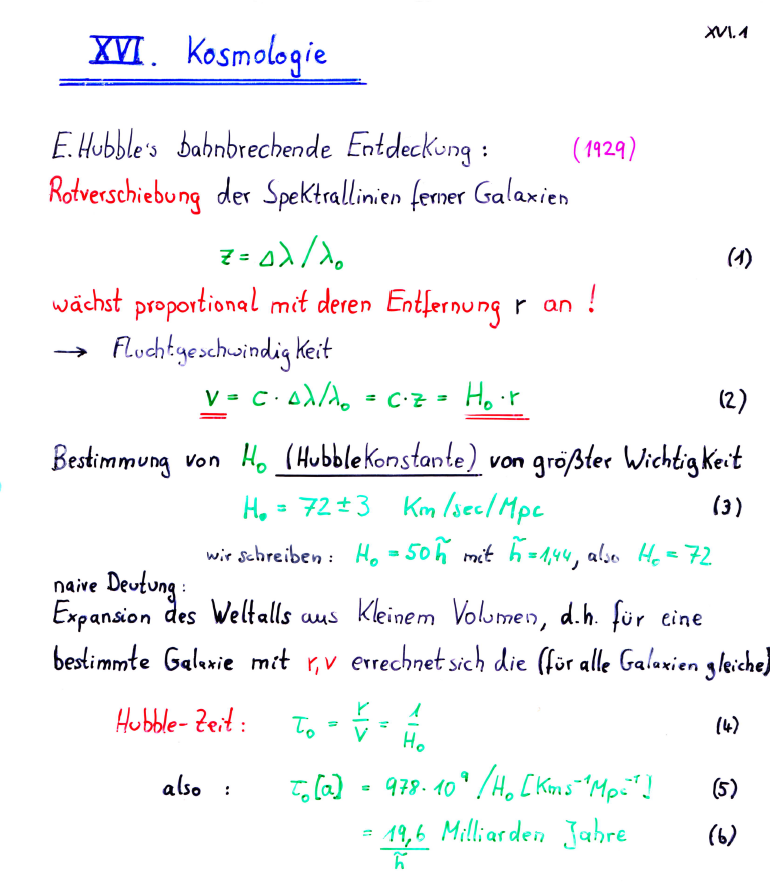 XVI.1
XVI. Kosmologie
E. Hubble's bahnbrechende Entdeckung: (1929)
Rotverschiebung der Spektrallinien ferner Galaxien
z = Δλ/λ₀ (1)
wächst proportional mit deren Entfernung r an!
→ Fluchtgeschwindigkeit
v = c · Δλ/λ₀ = c·z = H₀·r (2)
Bestimmung von H₀ (Hubblekonstante) von größter Wichtigkeit
H₀ = 72 ± 3 Km/sec/Mpc (3)
wir schreiben: H₀ = 50 h̃ mit h̃ = 1,44, also H₀ = 72
naive Deutung:
Expansion des Weltalls aus kleinem Volumen, d.h. für eine
bestimmte Galaxie mit r,v errechnet sich die (für alle Galaxien gleiche)
Hubble-Zeit: τ₀ = r/v = 1/H₀ (4)
also : τ₀[a] = 978·10⁹/H₀ [Kms⁻¹Mpc⁻¹] (5)
= 19,6/h̃ Milliarden Jahre (6)